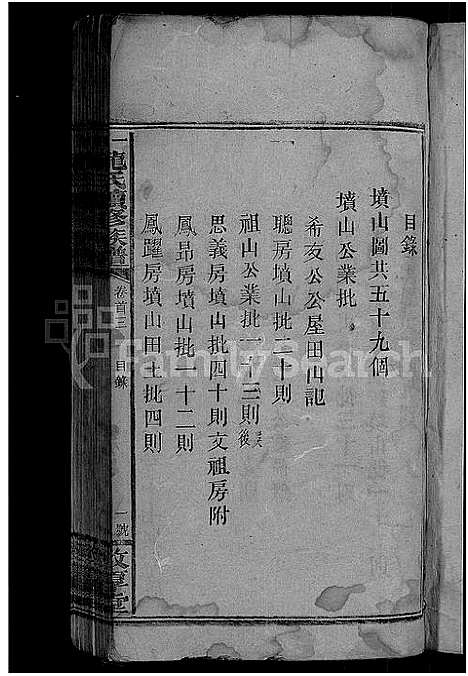 目錄
墳山圖共五十九個
墳山公業批
希友公公屋田山記
聰房墳山批二十則
祖山公業批一十三則
思義房墳山批四十則文祖房附
鳳昂房墳山批一十二則
鳳躍房墳山田土批四則
氏續修族譜
卷首三
目錄
一號
FamilySearch